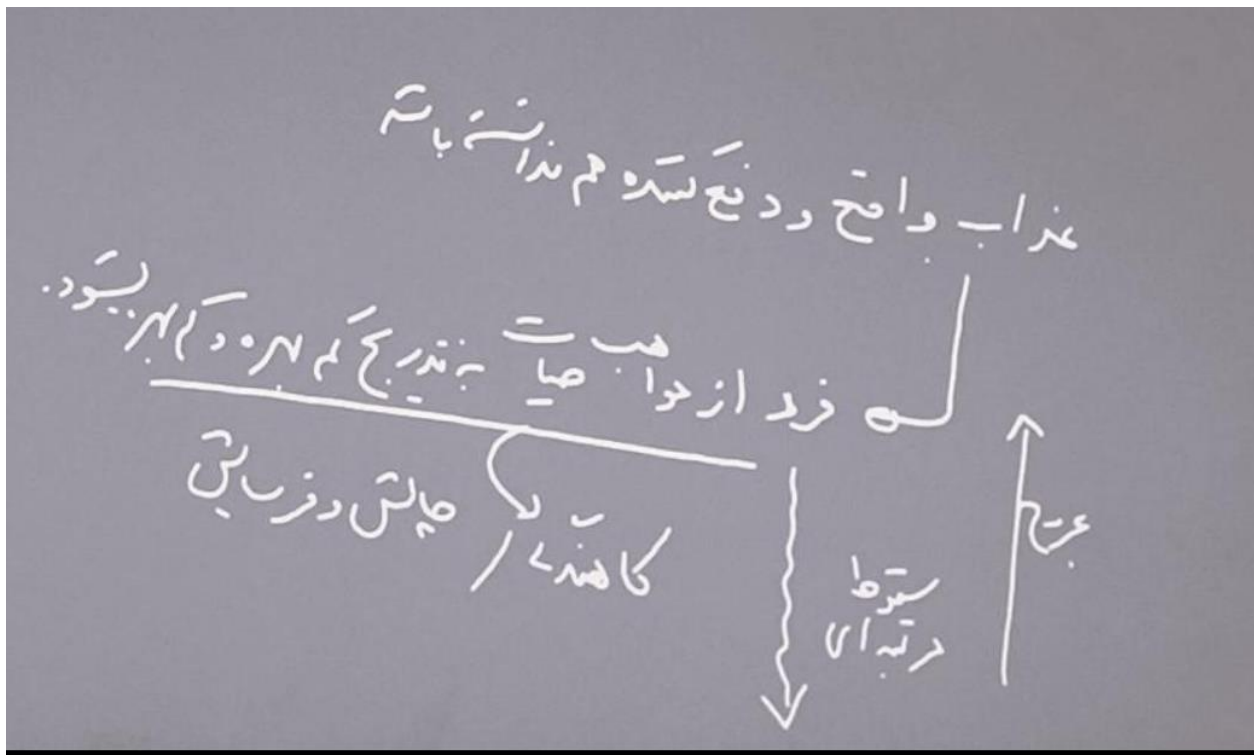 عذاب واقع و دفع کننده هم نداشته باشد
فرد از مواهب حیات به تدریج کم بهره و کم بهره‌تر بشود.
کاهندگی / چالش و فرسایش
سقوط
مرتبه‌ای
عروج